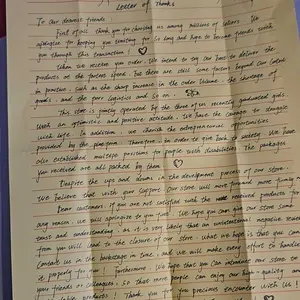 Letter of Thanks
To Our dearest friends
First of all, thank you for choosing us among millions of sellers. We
apologize for keeping you waiting for so long and hope to become friends with
you through this transaction! ♡
When we receive you order, we intend to try our best to deliver the
products at the fastest speed. But there are still some factors beyond our control
in practice, such as the sharp increase in the order Volume, the shortage of
goods, and the poor logistics and so on.
This store is jointly operated by the three of us recently graduated girls
with an optimistic and positive attitude. We have the courage to struggle
with life. In addiction, we cherish the entrepreneurial opportunities
provided by the platform. Therefore, in order to give back to society, We have
also established multiple positions for people with disabilities. The packages
you received are all packed by them ♡
Despite the ups and downs in the development process of our store,
We believe that with your support, Our store will move forward more firmly
Dear customers, if you are not satisfied with the received products for
any reason, we will apologize to you first. We hope you can give our store some
trust and understanding, as it is very likely that an unintentional negative review
from you will lead to the closure of our store. What we hope is that you can
Contact us in the backstage in time, and we will make every effort to handle
it properly for you! Furthermore, We hope that you can introduce our store to
your friends or colleagues, so that more people can enjoy our high-quality and
products. Thank you for you precious encounter with us!